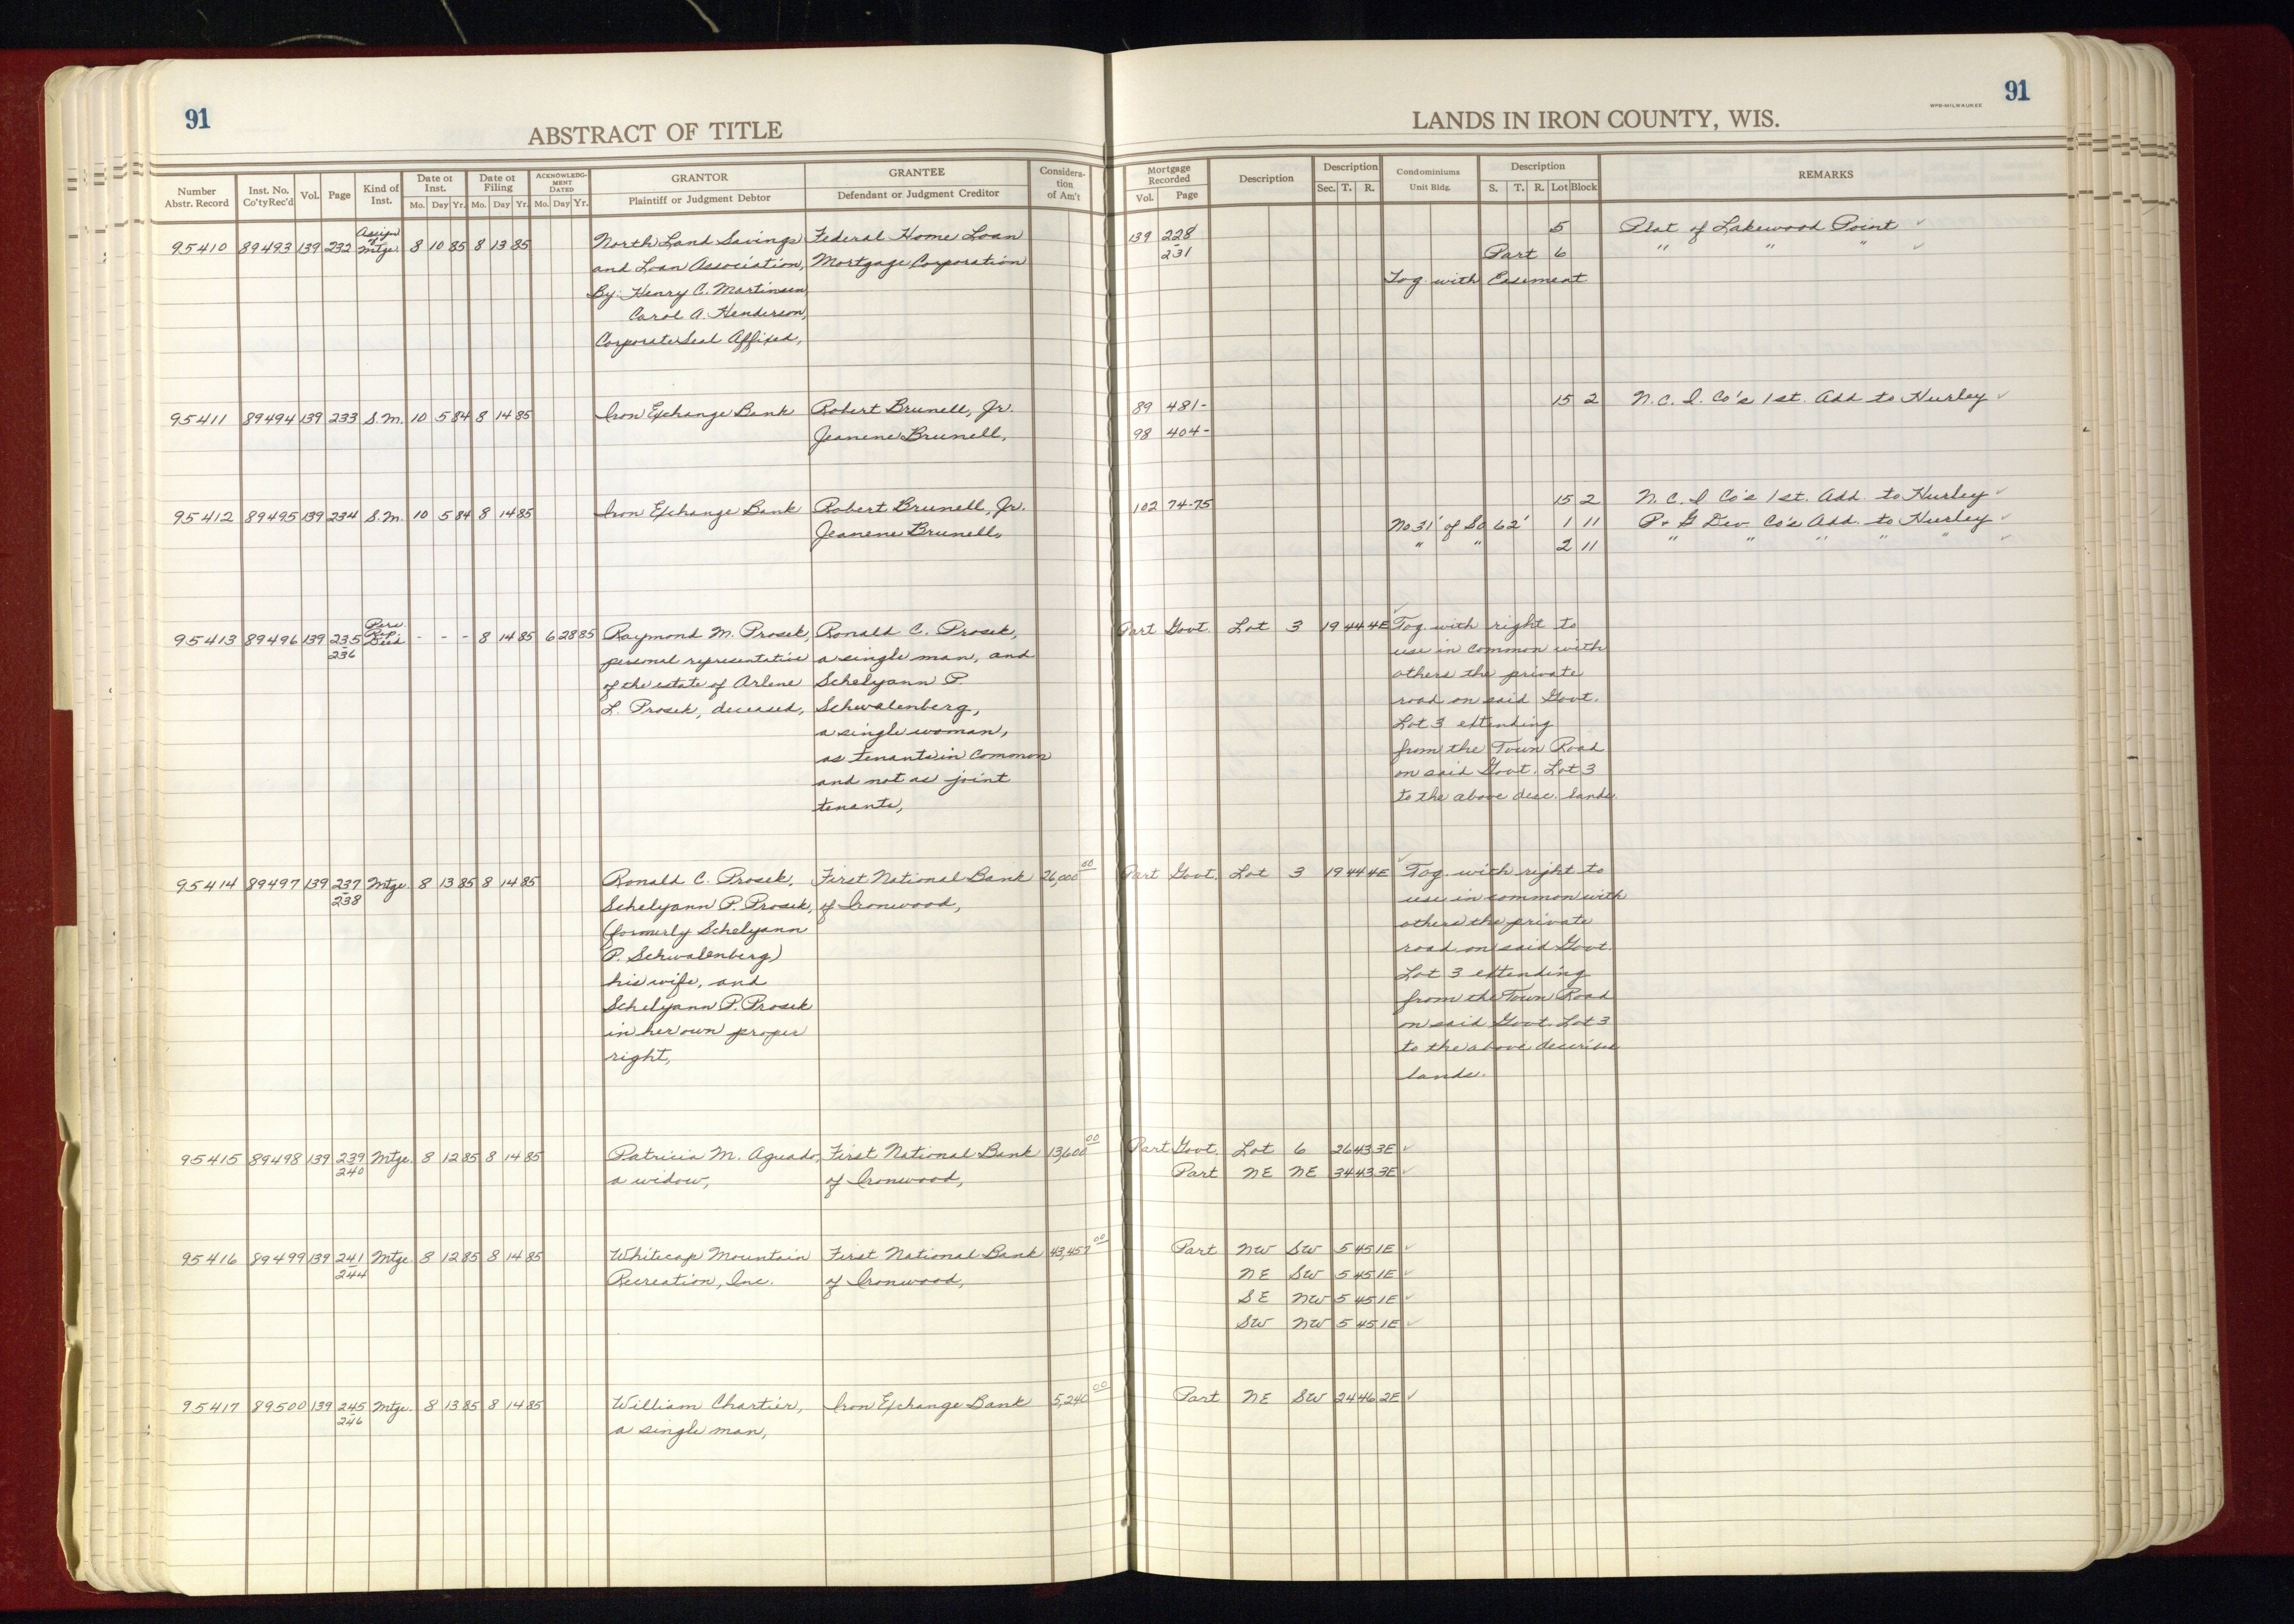 91
ABSTRACT OF TITLE
Number Abstr. Record Inst. No. Co'ty Rec'd Vol. Page Kind of Inst. Date of Inst. Mo. Day Yr. Date of Filing Mo. Day Yr. ACKNOWLEDGMENT DATED Mo. Day Yr. GRANTOR Plaintiff or Judgment Debtor GRANTEE Defendant or Judgment Creditor Consideration of Am't
95410 89493 139 232 Assign of Mtge. 8 10 85 8 13 85 North Land Savings Federal Home Loan
and Loan Association, Mortgage Corporation
By: Henry C. Martinsen,
Carol A. Henderson,
Corporate Seal Affixed,
95411 89494 139 233 S.M. 10 5 84 8 14 85 Iron Exchange Bank Robert Brunell, Jr.
Jeanene Brunell,
95412 89495 139 234 S.M. 10 5 84 8 14 85 Iron Exchange Bank Robert Brunell, Jr.
Jeanene Brunell,
95413 89496 139 235-236 Pers. Rep. Deed - - - 8 14 85 6 28 85 Raymond M. Prosek, Ronald C. Prosek,
personal representative a single man, and
of the estate of Arlene Schelyann P.
L. Prosek, deceased, Schwalenberg,
a single woman,
as tenants in common
and not as joint
tenants,
95414 89497 139 237-238 Mtge. 8 13 85 8 14 85 Ronald C. Prosek, First National Bank 26,000 00
Schelyann P. Prosek, of Ironwood,
(formerly Schelyann
P. Schwalenberg)
his wife, and
Schelyann P. Prosek
in her own proper
right,
95415 89498 139 239-240 Mtge. 8 12 85 8 14 85 Patricia M. Aguado, First National Bank 13,600 00
a widow, of Ironwood,
95416 89499 139 241-244 Mtge. 8 12 85 8 14 85 Whitecap Mountain First National Bank 43,457 00
Recreation, Inc. of Ironwood,
95417 89500 139 245-246 Mtge. 8 13 85 8 14 85 William Chartier, Iron Exchange Bank 5,240 00
a single man,
91
WPB-MILWAUKEE
LANDS IN IRON COUNTY, WIS.
Mortgage Recorded Vol. Page Description Description Sec. T. R. Condominiums Unit Bldg. Description S. T. R. Lot Block REMARKS
139 228 5 Plat of Lakewood Point
-231 Part 6 " " "
Tog. with Easement
89 481- 15 2 N.C.I. Co's 1st. Add to Hurley
98 404-
102 74-75 15 2 N.C.I Co's 1st. Add. to Hurley
No 31' of So 62' 1 11 P. & G Dev. Co's Add. to Hurley
" " 2 11 " " " " "
Part Govt. Lot 3 19 44 4E Tog. with right to
use in common with
others the private
road on said Govt.
Lot 3 extending
from the Town Road
on said Govt. Lot 3
to the above desc. lands.
Part Govt. Lot 3 19 44 4E Tog. with right to
use in common with
others the private
road on said Govt.
Lot 3 extending
from the Town Road
on said Govt. Lot 3
to the above describe
lands.
Part Govt. Lot 6 26 43 3E
Part NE NE 34 43 3E
Part NW SW 5 45 1E
NE SW 5 45 1E
SE NW 5 45 1E
SW NW 5 45 1E
Part NE SW 24 46 2E